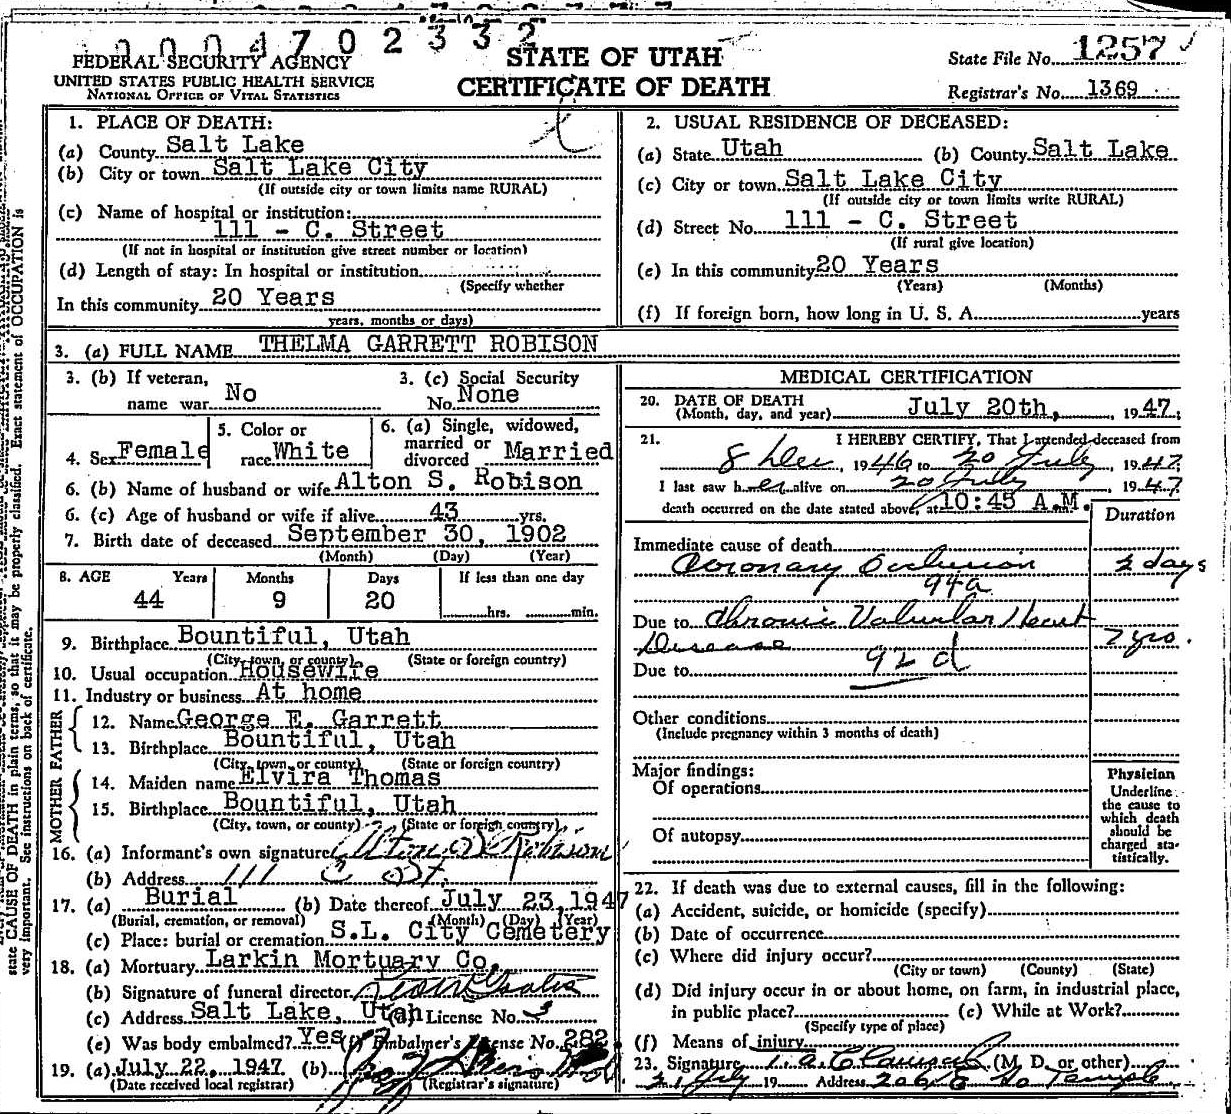 0004702332
FEDERAL SECURITY AGENCY
UNITED STATES PUBLIC HEALTH SERVICE
NATIONAL OFFICE OF VITAL STATISTICS
STATE OF UTAH
CERTIFICATE OF DEATH
State File No. 1257
Registrar's No. 1369
1. PLACE OF DEATH:
(a) County Salt Lake
(b) City or town Salt Lake City
(If outside city or town limits name RURAL)
(c) Name of hospital or institution:
111 - C. Street
(If not in hospital or institution give street number or location)
(d) Length of stay: In hospital or institution
(Specify whether
In this community 20 Years
years, months or days)
2. USUAL RESIDENCE OF DECEASED:
(a) State Utah (b) County Salt Lake
(c) City or town Salt Lake City
(If outside city or town limits write RURAL)
(d) Street No. 111 - C. Street
(If rural give location)
(e) In this community 20 Years
(Years) (Months)
(f) If foreign born, how long in U. S. A. years
3. (a) FULL NAME THELMA GARRETT ROBISON
3. (b) If veteran, name war No
3. (c) Social Security No. None
4. Sex Female
5. Color or race White
6. (a) Single, widowed, married or divorced Married
6. (b) Name of husband or wife Alton S. Robison
6. (c) Age of husband or wife if alive 43 yrs.
7. Birth date of deceased September 30, 1902
(Month) (Day) (Year)
8. AGE Years Months Days If less than one day
44 9 20 hrs. min.
9. Birthplace Bountiful, Utah
(City, town, or county) (State or foreign country)
10. Usual occupation Housewife
11. Industry or business At home
FATHER
12. Name George E. Garrett
13. Birthplace Bountiful, Utah
(City, town, or county) (State or foreign country)
MOTHER
14. Maiden name Elvira Thomas
15. Birthplace Bountiful, Utah
(City, town, or county) (State or foreign country)
16. (a) Informant's own signature Alton S. Robison
(b) Address 111 C St.
17. (a) Burial (b) Date thereof July 23, 1947
(Burial, cremation, or removal) (Month) (Day) (Year)
(c) Place: burial or cremation S.L. City Cemetery
18. (a) Mortuary Larkin Mortuary Co.
(b) Signature of funeral director
(c) Address Salt Lake, Utah (d) License No. 3
(e) Was body embalmed? Yes (f) Embalmer's License No. 282
19. (a) July 22, 1947 (b)
(Date received local registrar) (Registrar's signature)
MEDICAL CERTIFICATION
20. DATE OF DEATH
(Month, day, and year) July 20th, 1947
21. I HEREBY CERTIFY, That I attended deceased from
8 Dec, 1946 to 20 July, 1947
I last saw her alive on 20 July 1947
death occurred on the date stated above, at 10:45 A.M.
Duration
Immediate cause of death
Coronary Occlusion 2 days
94a
Due to Chronic Valvular Heart
Disease 7 yrs.
92d
Due to
Other conditions
(Include pregnancy within 3 months of death)
Major findings:
Of operations
Of autopsy
Physician
Underline
the cause to
which death
should be
charged sta-
tistically.
22. If death was due to external causes, fill in the following:
(a) Accident, suicide, or homicide (specify)
(b) Date of occurrence
(c) Where did injury occur?
(City or town) (County) (State)
(d) Did injury occur in or about home, on farm, in industrial place,
in public place? (e) While at Work?
(Specify type of place)
(f) Means of injury
23. Signature (M. D. or other)
21 July 19 Address 206 E So Temple
state CAUSE OF DEATH in plain terms, so that it may be properly classified. Exact statement of OCCUPATION is
very important. See instructions on back of certificate.